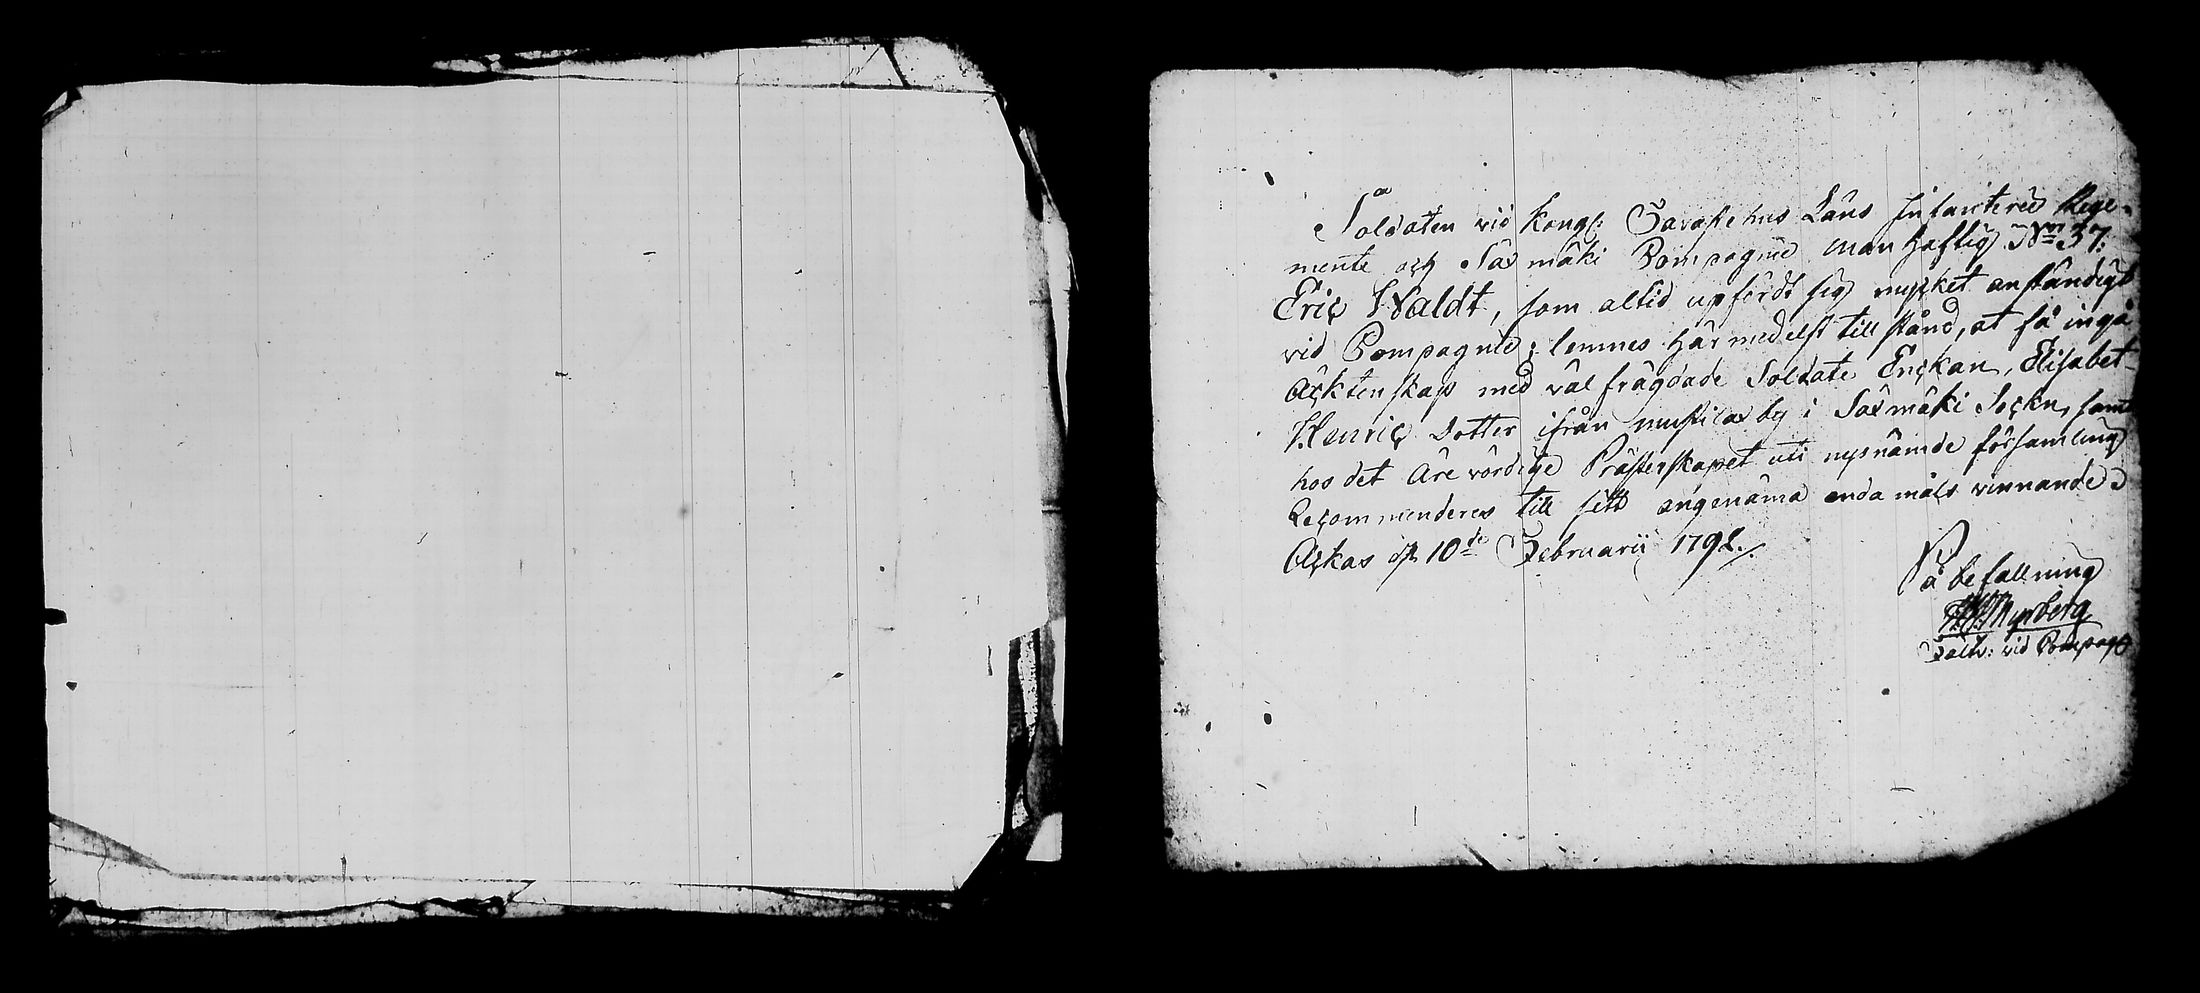 Soldaten vid Kongl: Tavastehus Läns Infanterie Rege-
mente och Säxmäki Compagnie Manhaftig No 37:
Eric Waldt, som altid upfördt sig mycket anständigt
vid Compagnie; lemnes härmedelst tillstånd, at få ingå
Äcktenskap med väl frägdade Soldate Enckan, Elisabet
Henric dotter ifrån by i Säxmäki Sockn, samt
hos det Äre vördige Prästerskapet uti nysnämde församling
Recommenderes till sitt angenäma endamåls vinnande
Ackas d. 10de Februarii 1792./.
På befallning
Nyberg
Fältw: vid Compag: